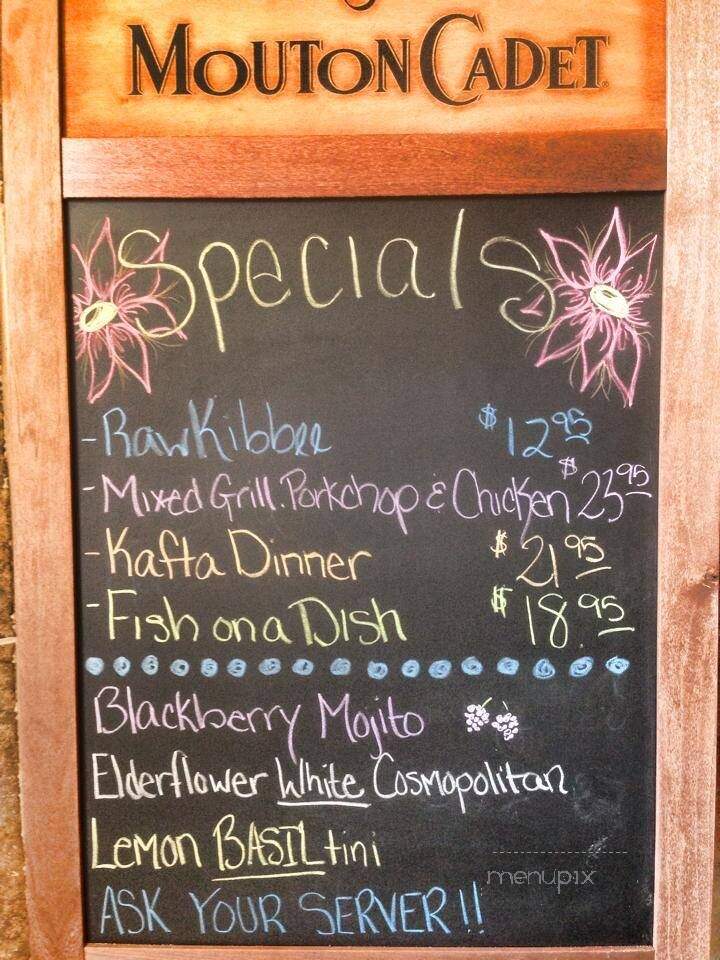 MOUTON CADET
Specials
- Raw Kibbee $12 95
- Mixed Grill. Porkchop & Chicken $23 95
- Kafta Dinner $21 95
- Fish on a Dish $18.95
Blackberry Mojito
Elderflower White Cosmopolitan
Lemon BASIL tini
menupix
ASK YOUR SERVER!!